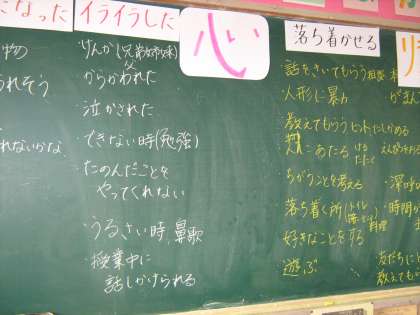 になった
イライラした
心
落ち着かせる
物
れそう
れないかな
・けんか(兄弟姉妹)
父
からかわれた
泣かされた
・できない時(勉強)
・たのんだことを
やってくれない
・うるさい時、鼻歌
・授業中に
話しかけられる
・話をきいてもらう
・人形に暴力
・教えてもらう ヒント
あたる
ける
たたく
・ちがうことを考える
・落ち着く所(トイレ
料理
好きなことをする
・遊ぶ
・時間
友だちに
教えても